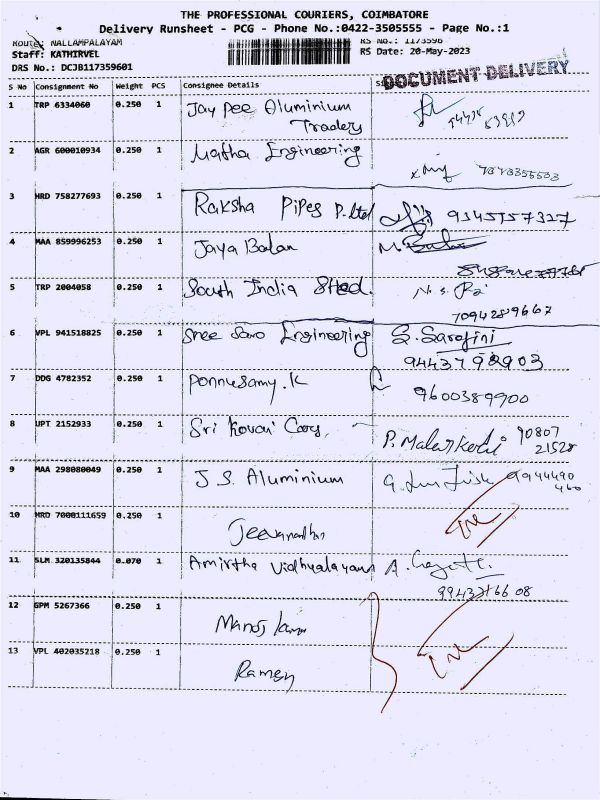 THE PROFESSIONAL COURIERS, COIMBATORE
Delivery Runsheet - PCG - Phone No.:0422-3505555 - Page No.:1
Route: NALLAMPALAYAM
RS No.: 1173596
Staff: KATHIRVEL
RS Date: 20-May-2023
DRS No.: DCJB117359601
DOCUMENT DELIVERY
S No Consignment No Weight PCS Consignee Details
1 TRP 6334060 0.250 1 Jay pee Aluminium
Traders
2 AGR 600010934 0.250 1 Matha Engineering
3 HRD 758277693 0.250 1 Raksha Pipes P.ltd 9345557327
4 MAA 859996253 0.250 1 Jaya Balan
5 TRP 2004058 0.250 1 South India Steel. N.S.
7094289667
6 VPL 941518825 0.250 1 Sree Engineering S. Sarojini
9443792903
7 DDG 4782352 0.250 1 Ponnusamy.K
9600389900
8 UPT 2152933 0.250 1 Sri Kovai Cars, P. Malarkodi 90807
21528
9 MAA 298080049 0.250 1 J.S. Aluminium 9944490
460
10 HRD 7000111659 0.250 1
Jeevanandha
11 SLM 320135844 0.070 1 Amirtha Vidhyalayam A.
12 GPM 5267366 0.250 1
Manoj
13 VPL 402035218 0.250 1
Ramesh